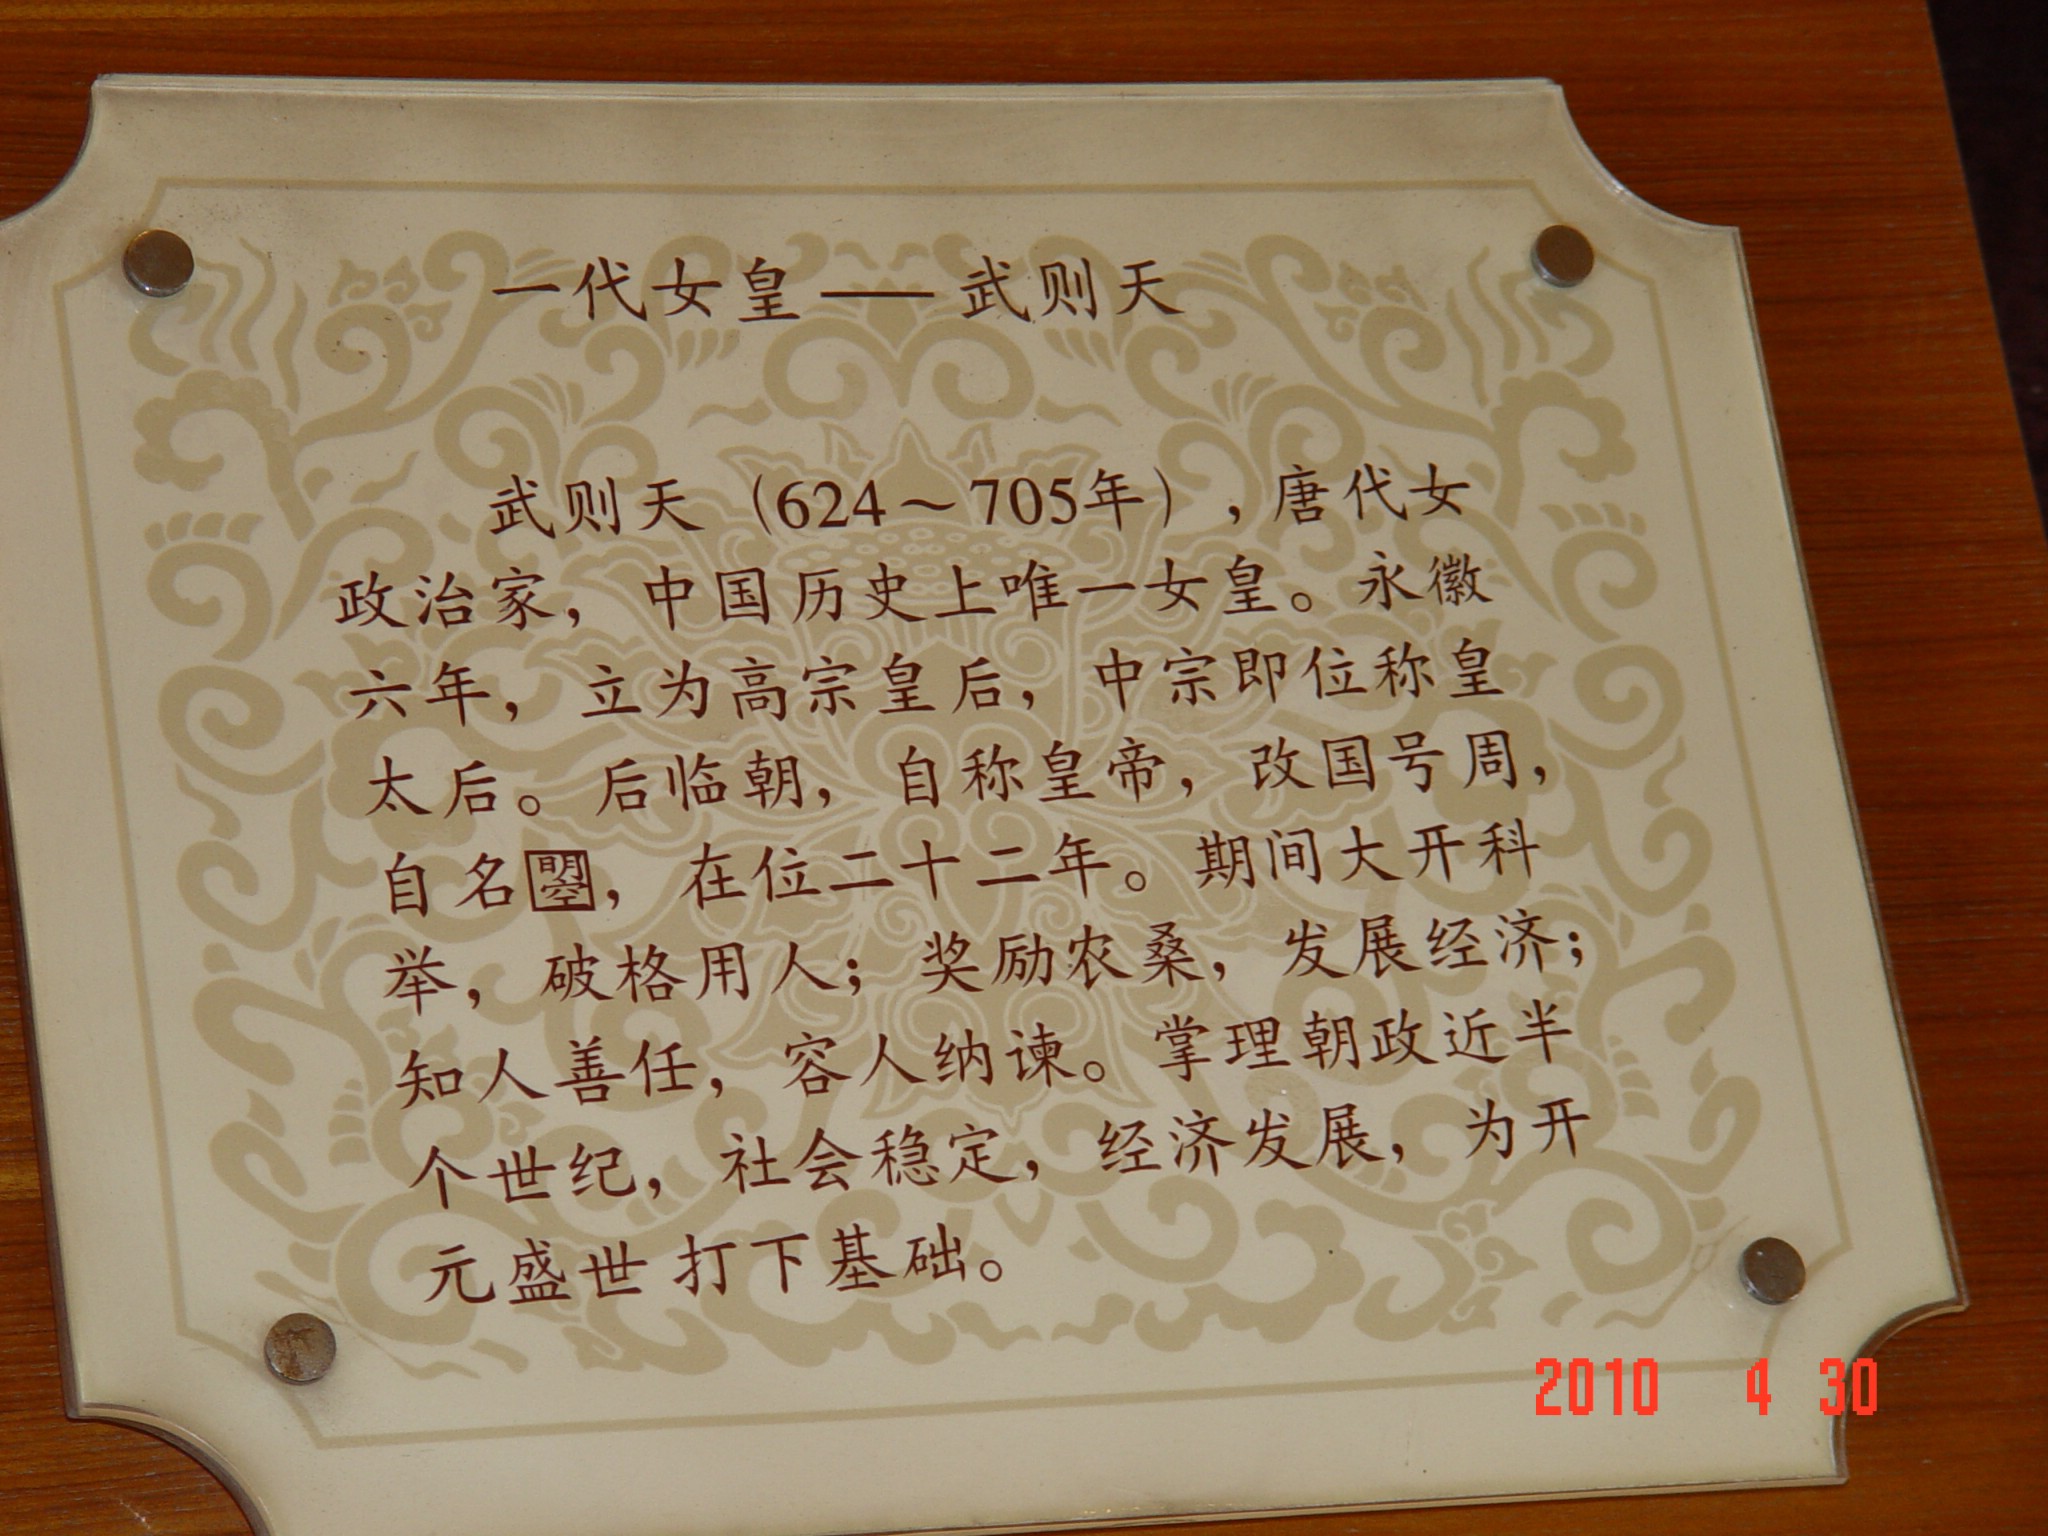 一代女皇——武则天
武则天（624～705年），唐代女
政治家，中国历史上唯一女皇。永徽
六年，立为高宗皇后，中宗即位称皇
太后。后临朝，自称皇帝，改国号周，
自名曌，在位二十二年。期间大开科
举，破格用人；奖励农桑，发展经济；
知人善任，容人纳谏。掌理朝政近半
个世纪，社会稳定，经济发展，为开
元盛世打下基础。
2010 4 30